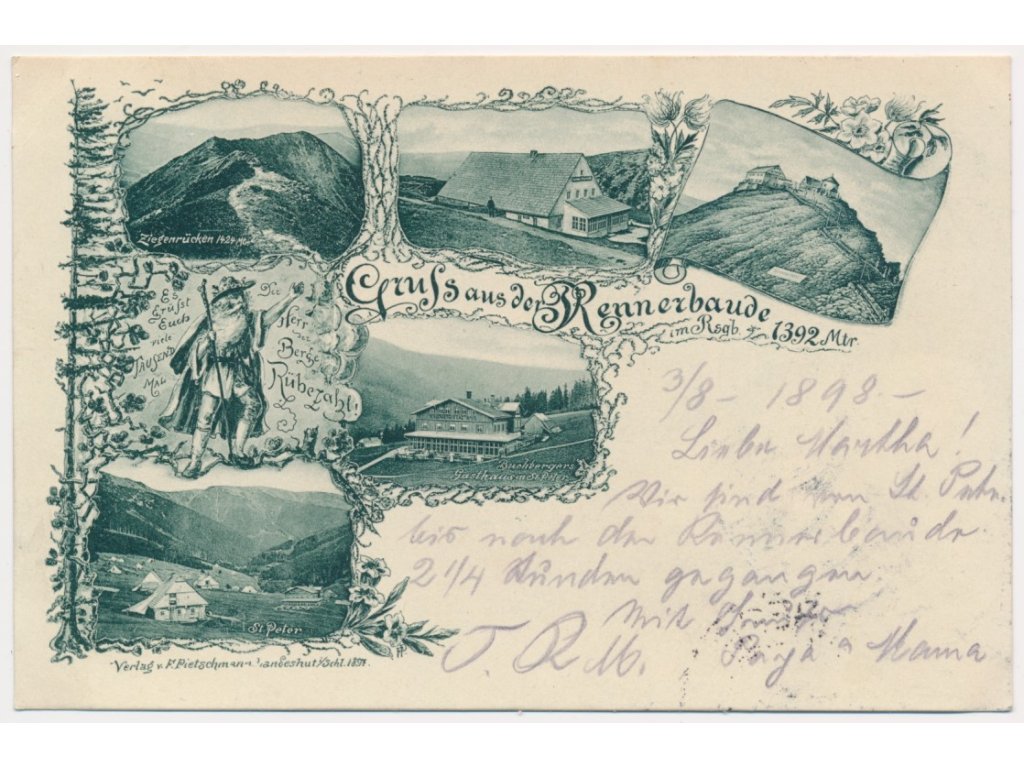 Ziegenrücken 1424 m.
Es
Grüßt
Euch
viele
TAUSEND
MAL
Der
Herr
der
Berge
Rübezahl!
Gruss aus der Rennerbaude
im Rsgb. 1392 Mtr.
Buchbergers
Gasthaus in St. Peter
St. Peter
Verlag v. F. Pietschmann Landeshut i/Schl.
3/8 - 1898 -
Liebe Martha!
Wir sind von St. Peter
bis nach der Rennerbaude
2 1/4 Stunden gegangen.
Mit
Papa u Mama